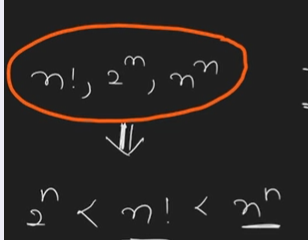 n!, 2ⁿ, nⁿ
2ⁿ < n! < nⁿ